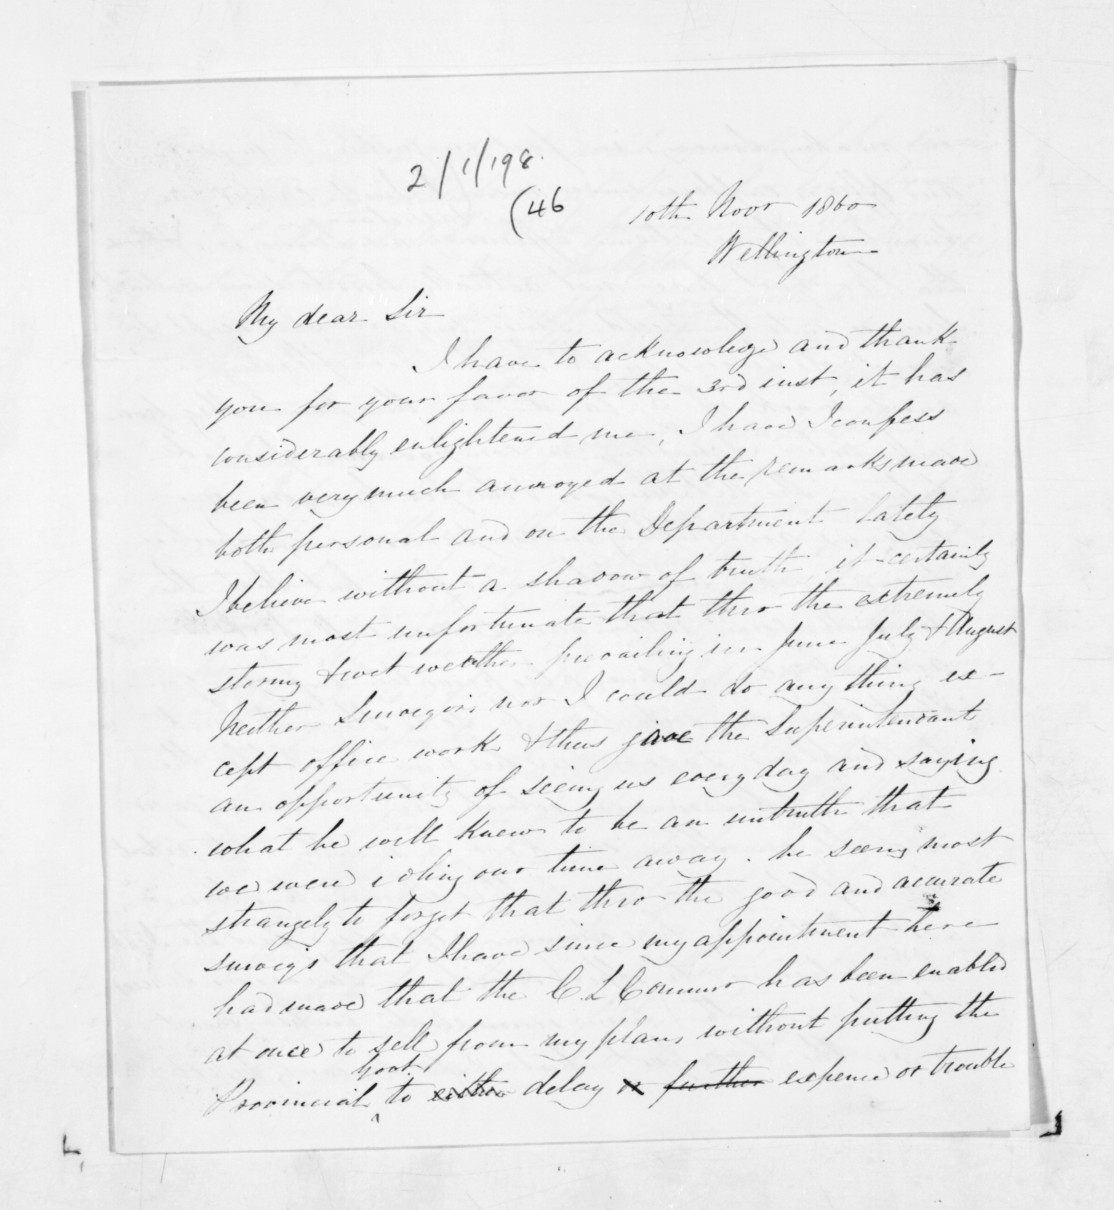 2/1/198
(46
10th Novr 1860
Wellington
My dear Sir
I have to acknowledge and thank
you for your favor of the 3rd inst, it has
considerably enlightened me, I have I confess
been very much annoyed at the remarks made
both personal and on the Department lately
I believe without a shadow of truth, it certainly
was most unfortunate that thro the extremely
stormy & wet weather prevailing in June July & August
Neither Surveyors nor I could do any thing ex-
cept office work & thus gave the Superintendant
an opportunity of seeing us every day and saying
what he well knew to be an untruth that
we were idling our time away. he seems most
strangely to forget that thro the good and accurate
surveys that I have since my appointment here
had made that the C L Commr has been enabled
at once to sell from my plans without putting the
Provincial Govt to either delay or further expence or trouble